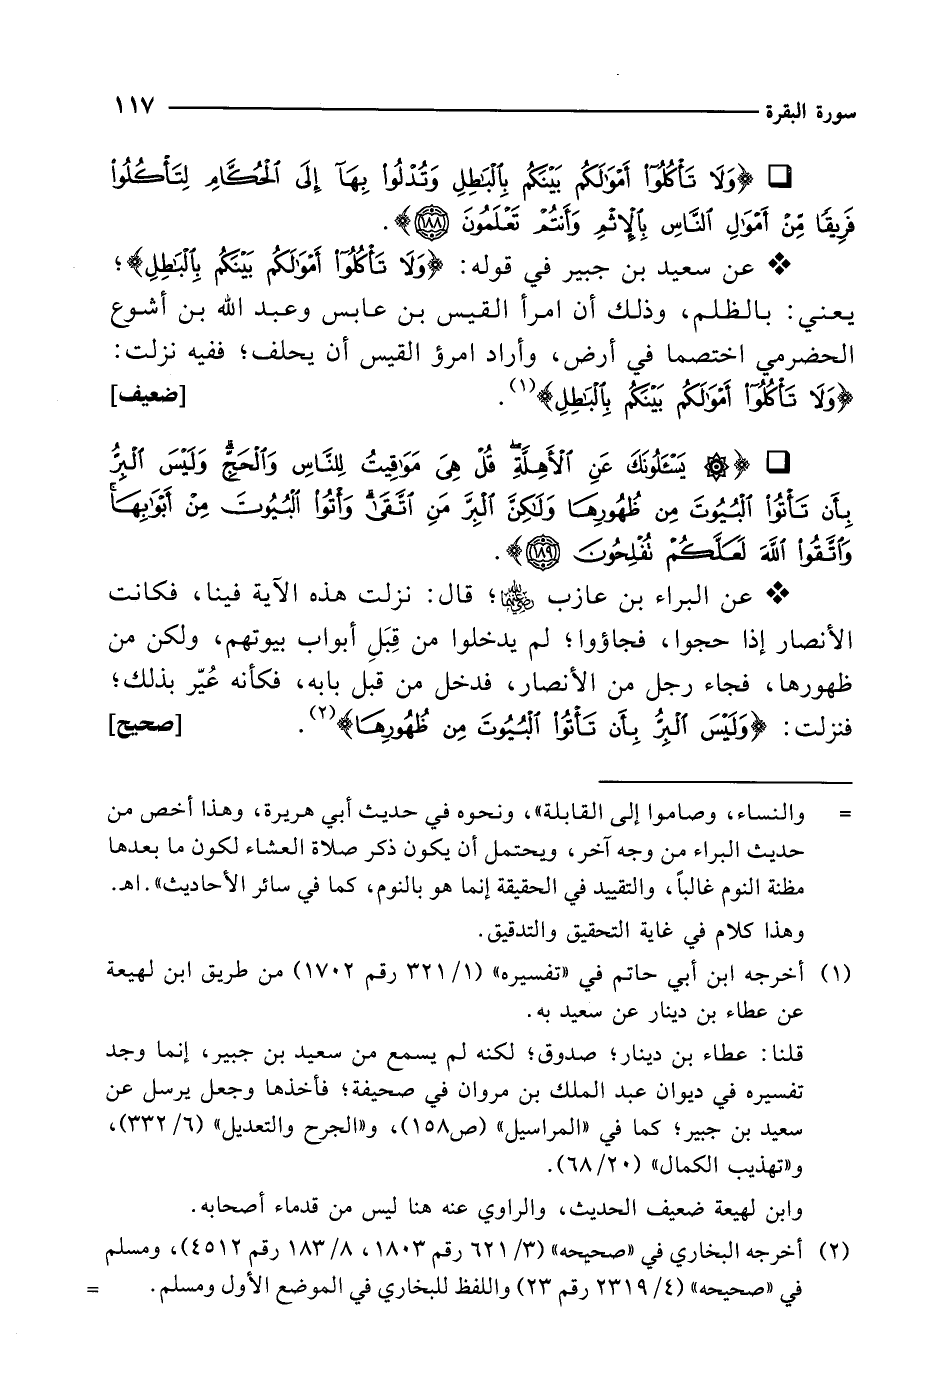 سورة البقرة ١١٧
❑ ﴿وَلَا تَأْكُلُوٓا۟ أَمْوَٰلَكُم بَيْنَكُم بِٱلْبَٰطِلِ وَتُدْلُوا۟ بِهَآ إِلَى ٱلْحُكَّامِ لِتَأْكُلُوا۟
فَرِيقًا مِّنْ أَمْوَٰلِ ٱلنَّاسِ بِٱلْإِثْمِ وَأَنتُمْ تَعْلَمُونَ ١٨٨﴾.
❖ عن سعيد بن جبير في قوله: ﴿وَلَا تَأْكُلُوٓا۟ أَمْوَٰلَكُم بَيْنَكُم بِٱلْبَٰطِلِ﴾؛
يعني: بالظلم، وذلك أن امرأ القيس بن عابس وعبد الله بن أشوع
الحضرمي اختصما في أرض، وأراد امرؤ القيس أن يحلف؛ ففيه نزلت:
﴿وَلَا تَأْكُلُوٓا۟ أَمْوَٰلَكُم بَيْنَكُم بِٱلْبَٰطِلِ﴾(١). [ضعيف]
❑ ﴿۞ يَسْـَٔلُونَكَ عَنِ ٱلْأَهِلَّةِ ۖ قُلْ هِىَ مَوَٰقِيتُ لِلنَّاسِ وَٱلْحَجِّ ۗ وَلَيْسَ ٱلْبِرُّ
بِأَن تَأْتُوا۟ ٱلْبُيُوتَ مِن ظُهُورِهَا وَلَٰكِنَّ ٱلْبِرَّ مَنِ ٱتَّقَىٰ ۗ وَأْتُوا۟ ٱلْبُيُوتَ مِنْ أَبْوَٰبِهَا ۚ
وَٱتَّقُوا۟ ٱللَّهَ لَعَلَّكُمْ تُفْلِحُونَ ١٨٩﴾.
❖ عن البراء بن عازب رضي الله عنهما؛ قال: نزلت هذه الآية فينا، فكانت
الأنصار إذا حجوا، فجاؤوا؛ لم يدخلوا من قِبَلِ أبواب بيوتهم، ولكن من
ظهورها، فجاء رجل من الأنصار، فدخل من قبل بابه، فكأنه عُيّر بذلك؛
فنزلت: ﴿وَلَيْسَ ٱلْبِرُّ بِأَن تَأْتُوا۟ ٱلْبُيُوتَ مِن ظُهُورِهَا﴾(٢). [صحيح]
= والنساء، وصاموا إلى القابلة»، ونحوه في حديث أبي هريرة، وهذا أخص من
حديث البراء من وجه آخر، ويحتمل أن يكون ذكر صلاة العشاء لكون ما بعدها
مظنة النوم غالباً، والتقييد في الحقيقة إنما هو بالنوم، كما في سائر الأحاديث».اهـ.
وهذا كلام في غاية التحقيق والتدقيق.
(١) أخرجه ابن أبي حاتم في «تفسيره» (١/ ٣٢١ رقم ١٧٠٢) من طريق ابن لهيعة
عن عطاء بن دينار عن سعيد به.
قلنا: عطاء بن دينار؛ صدوق؛ لكنه لم يسمع من سعيد بن جبير، إنما وجد
تفسيره في ديوان عبد الملك بن مروان في صحيفة؛ فأخذها وجعل يرسل عن
سعيد بن جبير؛ كما في «المراسيل» (ص١٥٨)، و«الجرح والتعديل» (٦/ ٣٣٢)،
و«تهذيب الكمال» (٢٠/ ٦٨).
وابن لهيعة ضعيف الحديث، والراوي عنه هنا ليس من قدماء أصحابه.
(٢) أخرجه البخاري في «صحيحه» (٣/ ٦٢١ رقم ١٨٠٣، ٨/ ١٨٣ رقم ٤٥١٢)، ومسلم
في «صحيحه» (٤/ ٢٣١٩ رقم ٢٣) واللفظ للبخاري في الموضع الأول ومسلم. =